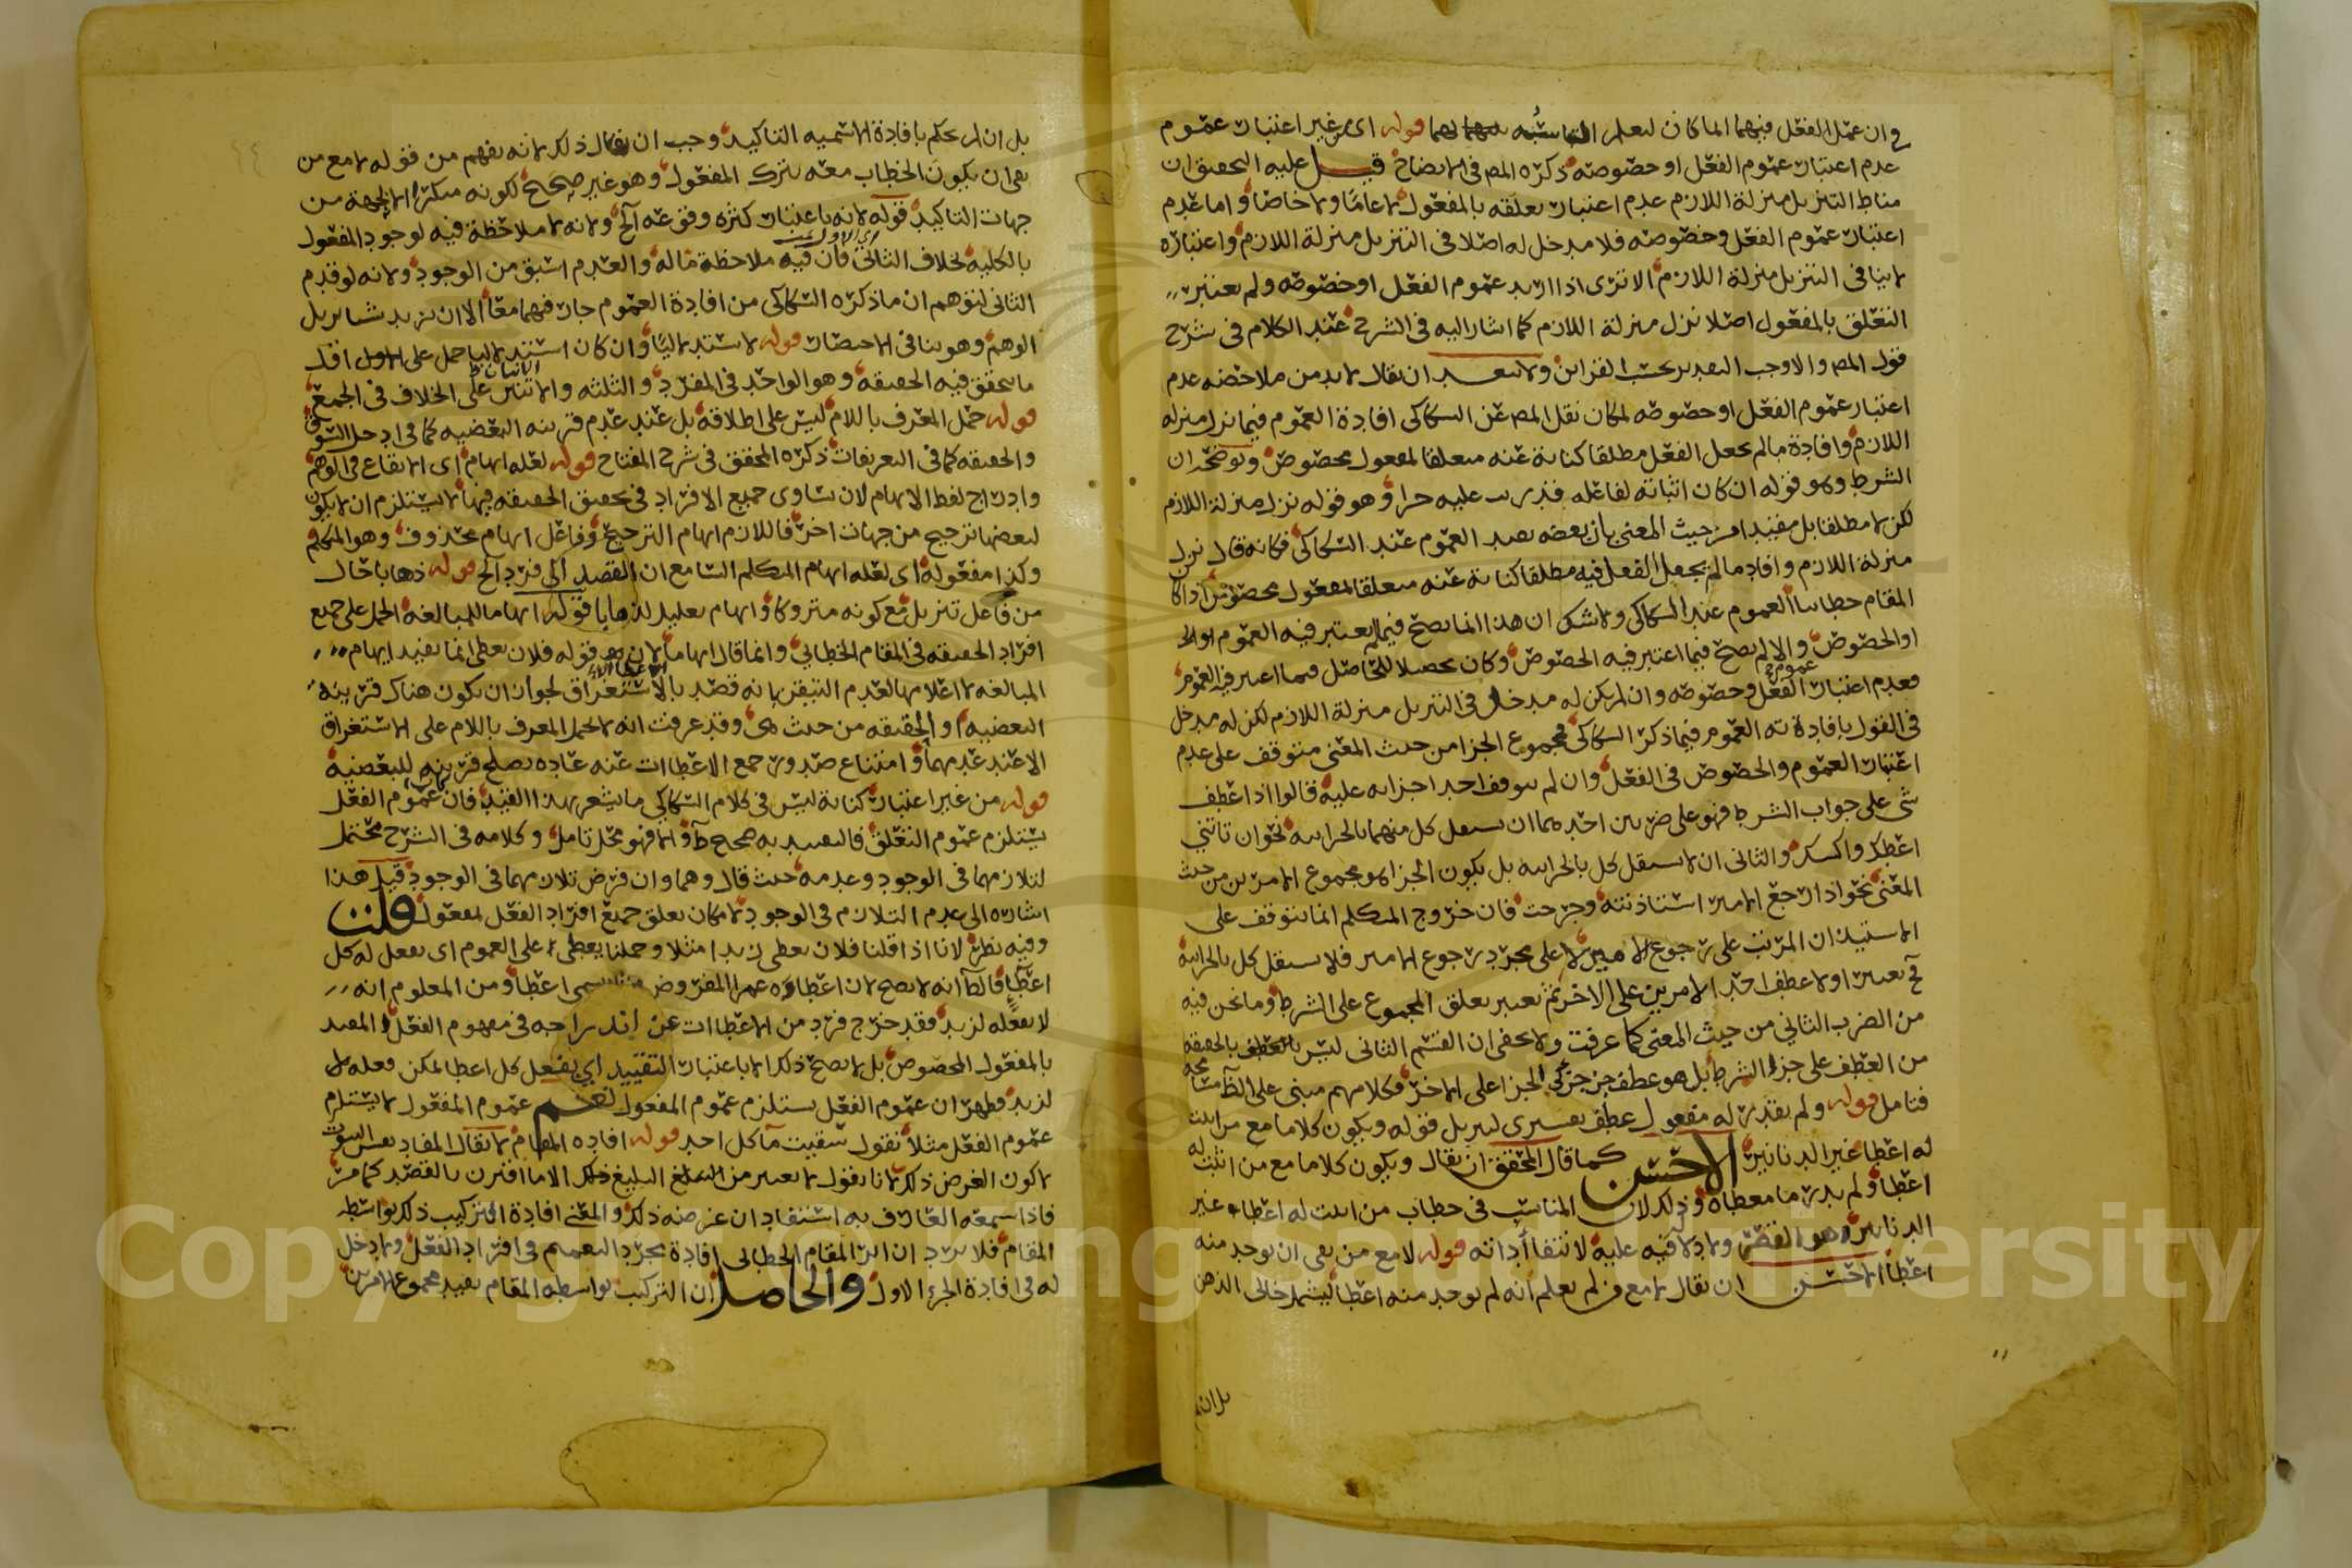 وان عمل الفعل فيهما انما كان لتعلم الما شبه لهما قوله اى من غير اعتبار عموم
عدم اعتبار عموم الفعل او خصوصه ذكره المص فى الايضاح قيل عليه التحقيق ان
مناط التنزيل منزلة اللازم عدم اعتبار تعلقه بالمفعول لا عاما ولا خاصا واما عدم
اعتبار عموم الفعل وخصوصه فلا مدخل له اصلا فى التنزيل منزلة اللازم واعتباره
لا ينافى التنزيل منزلة اللازم الا ترى اذا اريد عموم الفعل او خصوصه ولم يعتبر
التعلق بالمفعول اصلا نزل منزلة اللازم كما اشار اليه فى الشرح عند الكلام فى شرح
قول المص والا وجب التقدير بحسب القراين ولا يبعد ان يقال لا بد من ملاحضه عدم
اعتبار عموم الفعل او خصوصه لمكان نقل المص عن السكاكى افادة العموم فيما نزل منزله
اللازم وافادة ما لم يجعل الفعل مطلقا كناية عنه متعلقا لمفعول مخصوص وتوضيحه ان
الشرط وهو قوله ان كان اثباته لفاعله قد رتب عليه جزا وهو قوله نزل منزلة اللازم
لكن لا مطلقا بل مفيدا من حيث المعنى بان بعضه يفيد العموم عند السكاكى فكانه قال نزل
منزلة اللازم وافاد ما لم يجعل الفعل فيه مطلقا كناية عنه متعلقا لمفعول مخصوص اذا كان
المقام خطابيا العموم عند السكاكى ولا شك ان هذا انما يصح فيما لم يعتبر فيه العموم
او الخصوص والا لم يصح فيما اعتبر فيه الخصوص وكان تحصيلا للحاصل فيما اعتبر فيه العموم
فعدم اعتبار عموم الفعل وخصوصه وان لم يكن له مدخل فى التنزيل منزلة اللازم لكن له مدخل
فى القول بافادة ته العموم فيما ذكر السكاكى فمجموع الجزا من حيث المعنى متوقف على عدم
اعتبار العموم والخصوص فى الفعل وان لم يتوقف احد اجزايه عليه قالوا اذا عطف
شى على جواب الشرط فهو على ضربين احدهما ان يستقل كل منهما بالجزائيه نحو ان تاتنى
اعطك واكسك والثانى ان لا يستقل كل بالجزائيه بل يكون الجزا هو مجموع الامرين من حيث
المعنى نحو اذا رجع الامير استاذنته وخرجت فان خروج المتكلم انما يتوقف على
الاستيذان المرتب على رجوع الامير لا على مجرد رجوع الامير فلا يستقل كل بالجزائية
فح يعتبر اولا عطف احد الامرين على الاخر ثم يعتبر تعلق المجموع على الشرط وما نحن فيه
من الضرب الثاني من حيث المعنى كما عرفت ولا يخفى ان القسم الثانى ليس بالعطف بالحقيقه
من العطف على جزا الشرط بل هو عطف جزء جزئى الجزا على الاخر فكلامهم مبنى على المسامحه
فتامل قوله ولم يقدر له مفعول عطف تفسيرى لتنزيل قوله ويكون كلاما مع من اثبت
له اعطا غير الدنانير الاحسن كما قال المحقق ان يقال ويكون كلاما مع من اثبت له
اعطا ولم يدر ما معطاه وذلك لان المناسب فى خطاب من اثبت له اعطاء غير
الدنانير وهو القصر ولا دلالة فيه عليه لانتفا أداته قوله لا مع من نفى ان يوجد منه
اعطا الاحسن ان يقال لا مع من لم يعلم انه لم يوجد منه اعطا ليشمل خالى الذهن
بل ان
بل ان لم يحكم بافادة الاسميه التاكيد وجب ان يقال ذلك لانه يفهم من قوله لا مع من
نفى ان يكون الخطاب معه بترك المفعول وهو غير صحيح لكونه منكرا الا لجهة من
جهات التاكيد قوله لانه باعتبار كثرة وقوعه الخ ولانه لا ملاحظة فيه لوجود المفعول
اى الاول
بالكليه بخلاف الثانى فان فيه ملاحظة ما له والعدم اسبق من الوجود ولانه لو قدم
الثانى لتوهم ان ما ذكره السكاكى من افادة العموم جار فيهما معا الا ان يزيد شا يزيل
الوهم وهو ينافى الاختصار قوله لا استدلاليا وان كان استدلاليا حمل على الاول اقل
ما يتحقق فيه الحقيقه وهو الواحد فى المفرد والثلثه والاثنين على الخلاف فى الجمع
قوله حمل المعرف باللام ليس على اطلاقه بل عند عدم قرينه البعضيه كما فى ادخل السوق
والحقيقه كما فى التعريفات ذكره المحقق فى شرح المفتاح قوله لعله ايهام اى الايقاع فى الوهم
وادراج لفظ الايهام لان تساوى جميع الافراد فى تحقيق الحقيقه فيها لا يستلزم ان لا يكون
لبعضها ترجيح من جهات اخر فاللازم ايهام الترجيح وفاعل ايهام محذوف وهو المتكلم
وكذا مفعوله اى لعله ايهام المتكلم السامع ان القصد الى فرد الخ قوله ذهابا حال
من فاعل تنزيل مع كونه متروكا وايهام تعليل لذهابا قوله ايهاما للمبالغه الحمل على جميع
افراد الحقيقه فى المقام الخطابي وانما قال ايهاما لان قوله فلان يعطى انما يفيد ايهام
المبالغه لا اعلامها لعدم التيقن بانه قصد بالاستغراق لجواز ان يكون هناك قرينه
البعضيه او الحقيقه من حيث هى وقد عرفت انه لا يحمل المعرف باللام على الاستغراق
الا عند عدمهما وامتناع صدور جمع الاعطاات عنه عاده يصلح قرينه للبعضيه
قوله من غير اعتبار كناية ليس فى كلام السكاكي ما يشعر بهذا القيد فان عموم الفعل
يستلزم عموم التعلق فالتقييد به صحيح والا فهو محل تامل وكلامه فى الشرح محتمل
لتلازمهما فى الوجود وعدمه حيث قال وهما وان فرض تلازمهما فى الوجود قيل هذا
اشاره الى عدم التلازم فى الوجود لامكان تعلق جميع افراد الفعل لمفعول قلت
وفيه نظر لانا اذا قلنا فلان يعطى زيدا مثلا وحملنا يعطى على العموم اى يفعل له كل
اعطا قالظ انه لا يصح لان اعطاوه عمرا المفروض مثلا يسمى اعطا ومن المعلوم انه
لا يفعله لزيد فقد خرج فرد من الاعطاات عن اندراجه فى مفهوم الفعل المقيد
بالمفعول المخصوص بل لا يصح ذلك الا باعتبار التقييد اي يفعل كل اعطا يمكن فعله
لزيد فظهر ان عموم الفعل يستلزم عموم المفعول نعم عموم المفعول لا يستلزم
عموم الفعل مثلا نقول سقيت كل احد قوله افاده المقام لا يقال المفاد
لا كون الغرض ذلك لانا نقول لا يعتبر من البليغ الا ما اقترن بالقصد كما مر
فاذا سمعه العارف به استفاد ان غرضه ذلك والمعنى افادة التركيب ذلك بواسطه
المقام فلا يرد ان اثر المقام الخطابى افادة مجرد التعميم فى افراد الفعل ولا دخل
له فى افادة الجزء الاول والحاصل ان التركيب بواسطه المقام يفيد مجموع الامرين
Copyright © King Saud University